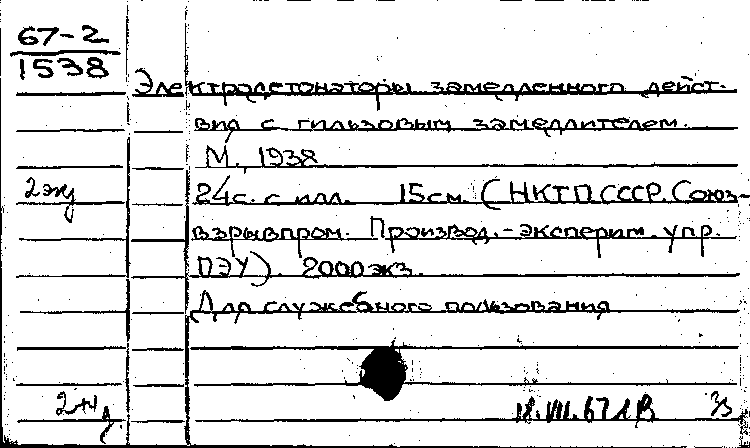 67-2
1538
Электродетонаторы замедленного дейст-
вия с гильзовым замедлителем.
М., 1938
2 экз
24с. с илл. 15см. (НКТП СССР. Союз-
взрывпром. Производ.-эксперим. упр.
ПЭУ). 2000 экз.
Для служебного пользования
18.VIII.67